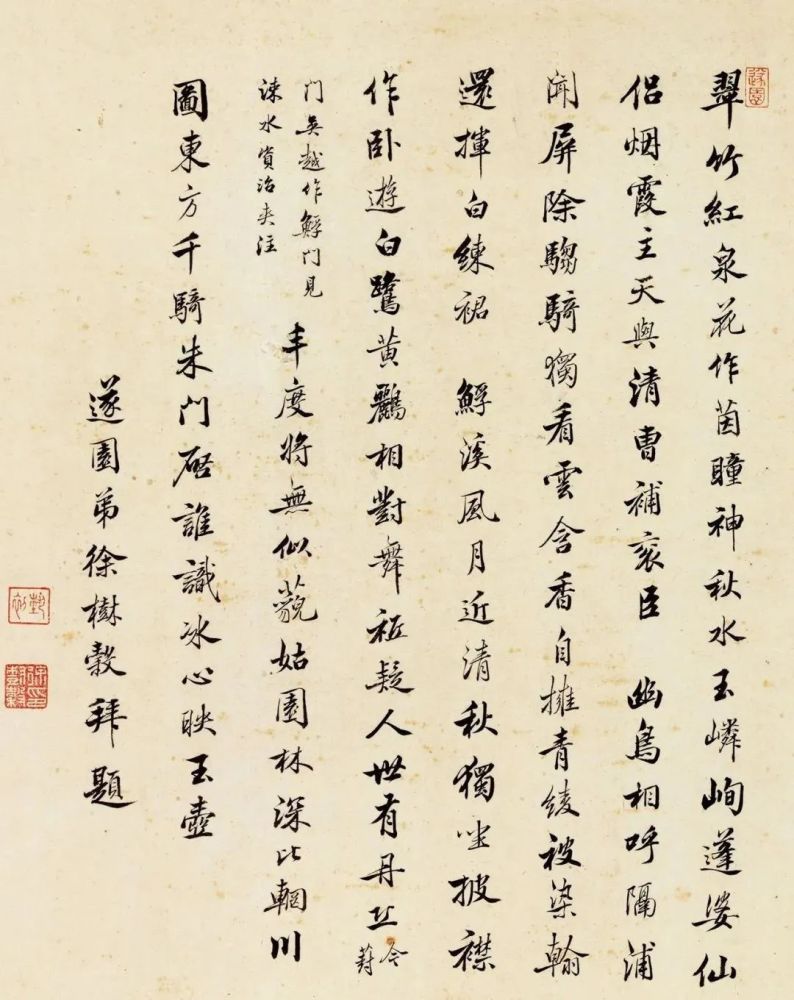 遂園
翠竹紅泉花作茵瞳神秋水玉嶙峋蓬婆仙
侶烟霞主天與清曹補衮臣 幽鳥相呼隔浦
闻屏除騶騎獨看雲含香自擁青綾被染翰
還揮白練裙 䱐溪風月近清秋獨坐披襟
作卧遊白鷺黄鸝相對舞祗疑人世有丹丘今葑
門吳越作䱐門見
涑水資治夾注
丰度將無似藐姑園林深比輞川
圖東方千騎朱門啓誰識冰心映玉壺
遂園弟徐樹穀拜題
藝初
徐樹穀印